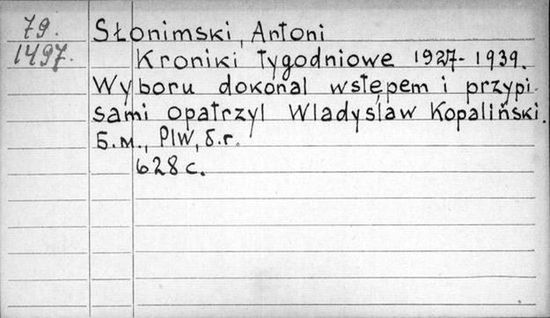 79.
1497.
Słonimski, Antoni
Kroniki tygodniowe 1927-1939.
Wyboru dokonal wstępem i przypi-
sami opatrzyl Wladyslaw Kopaliński.
Б.м., PIW, б.г.
628 с.